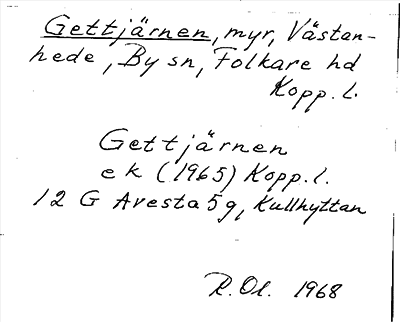 Gettjärnen, myr, Västan-
hede, By sn, Folkare hd
Kopp. l.
Gettjärnen
ek (1965) Kopp. l.
12 G Avesta 5g, Kullhyttan
R. Ol. 1968